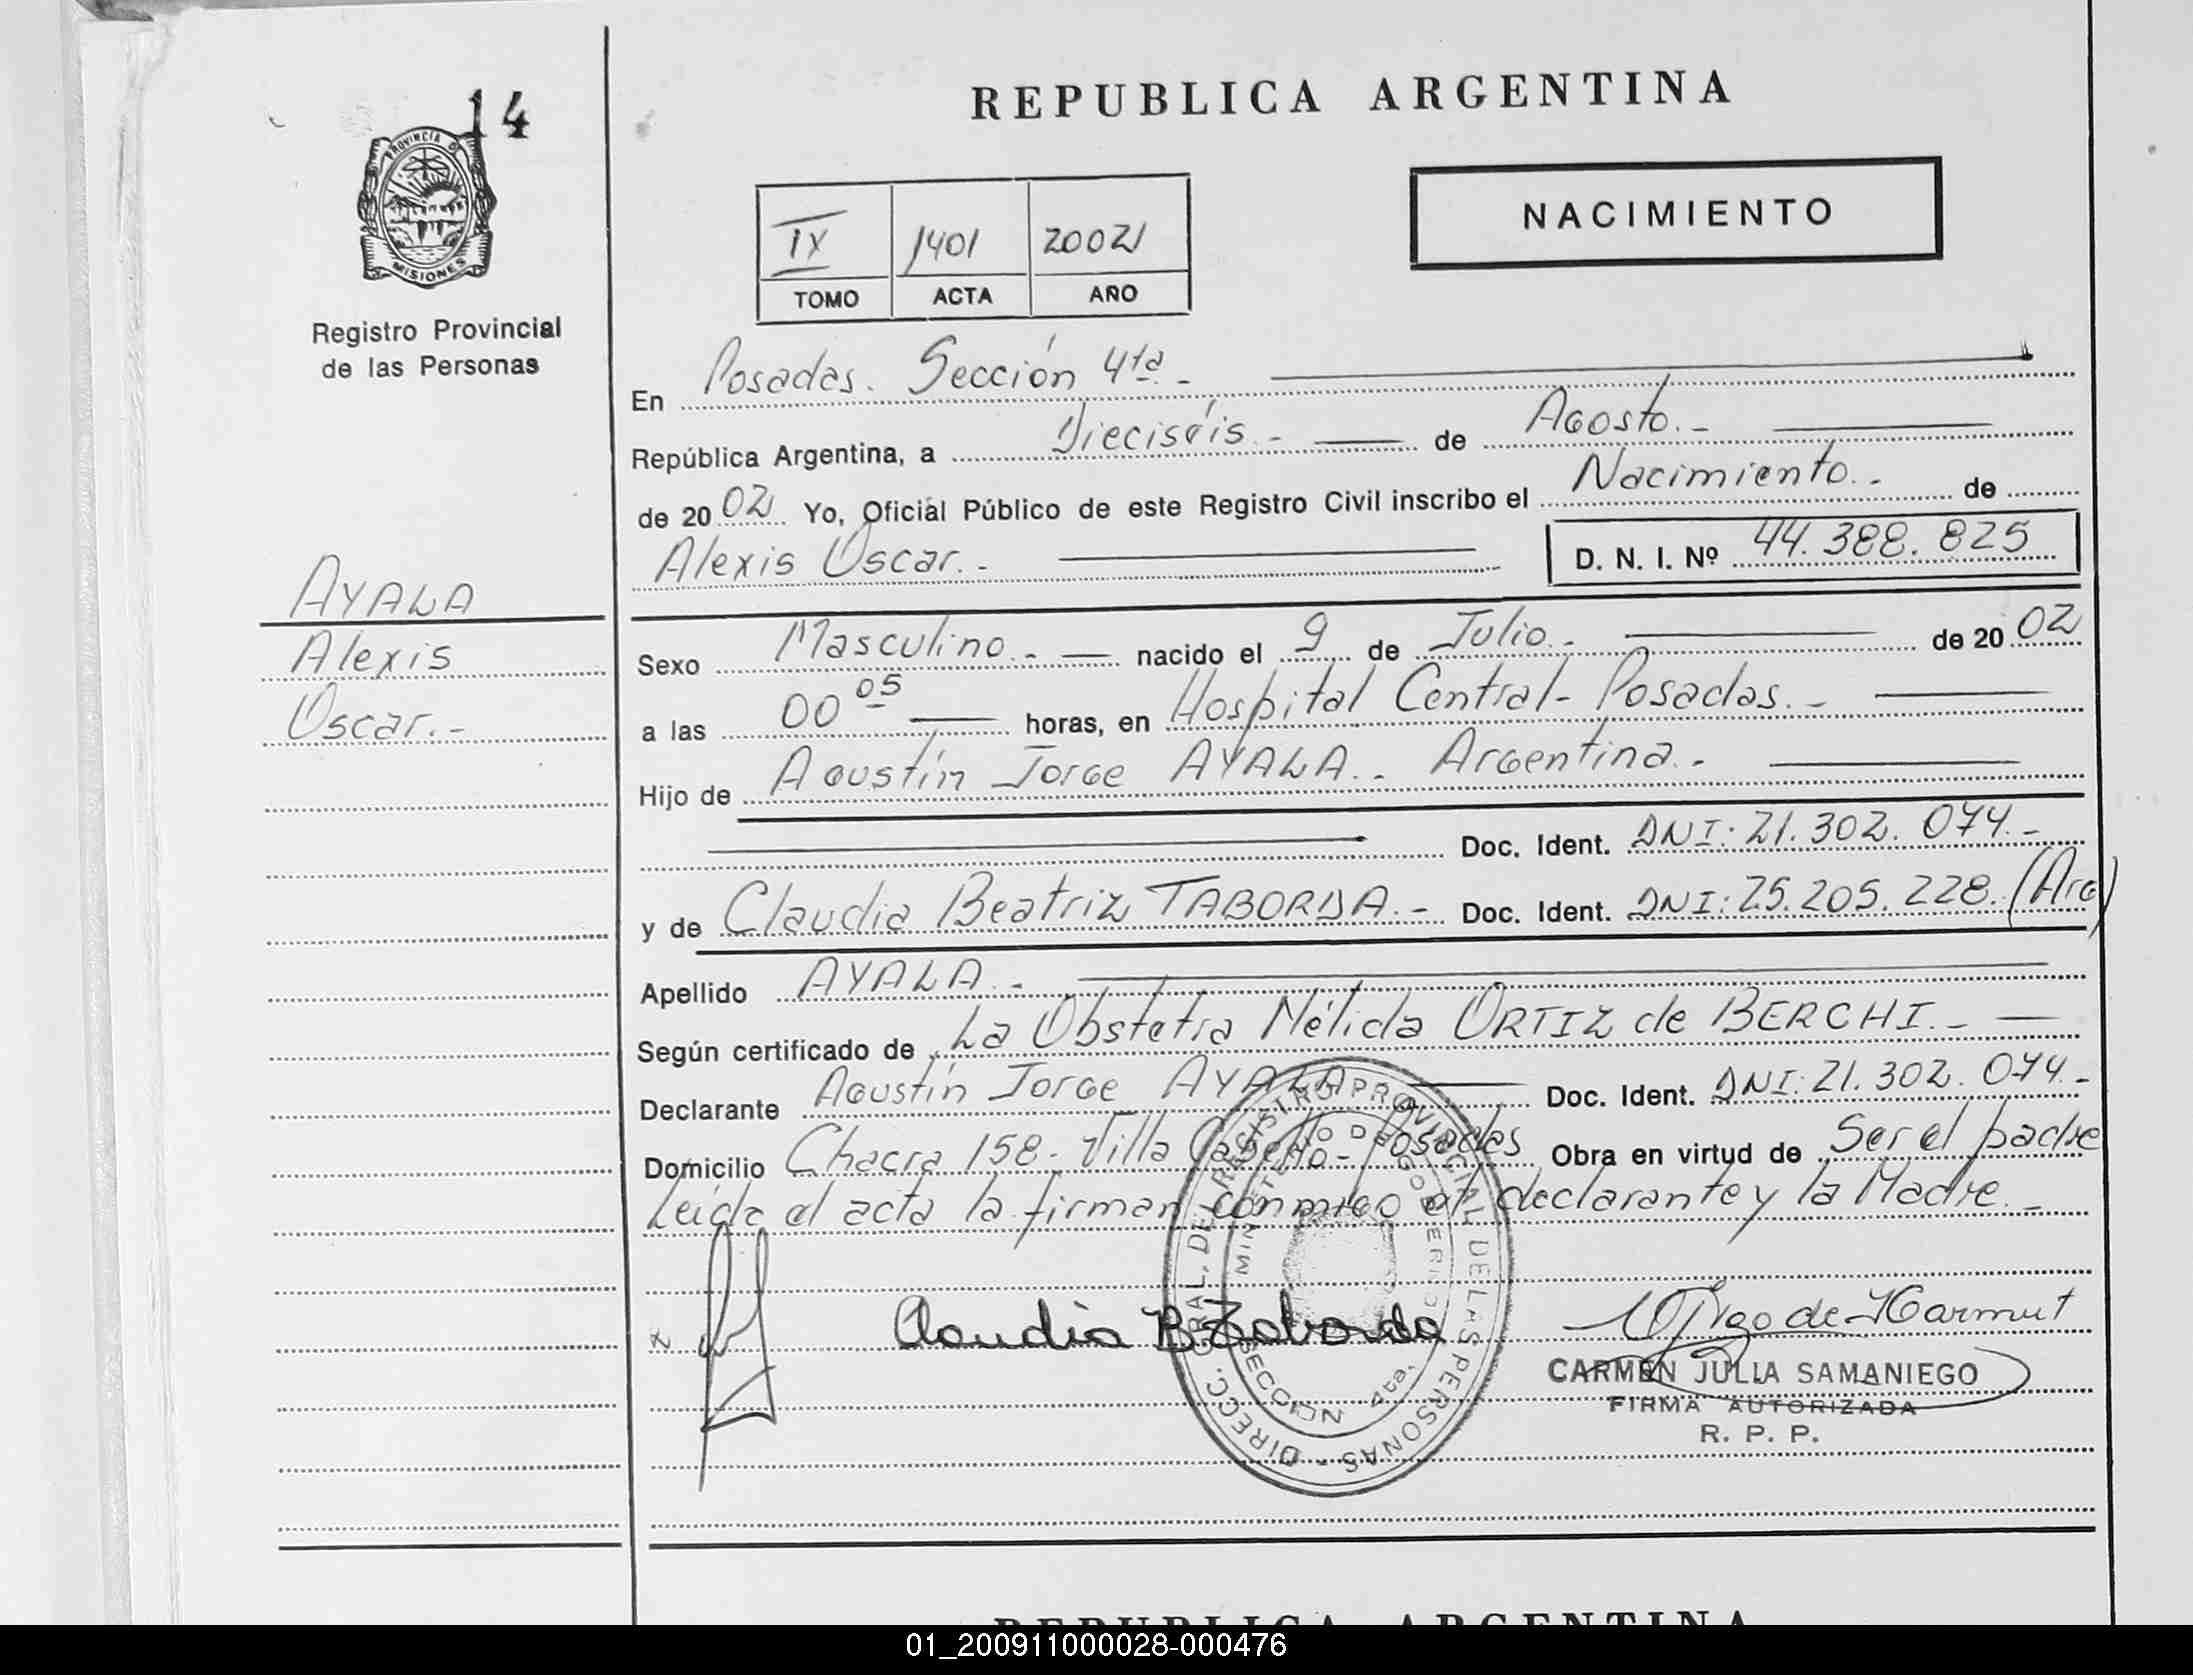 14
PROVINCIA D
MISIONES
Registro Provincial
de las Personas
AYALA
Alexis
Oscar.-
REPUBLICA ARGENTINA
NACIMIENTO
IX 1401 2002
TOMO ACTA AÑO
En Posadas. Sección 4ta.-
República Argentina, a Dieciséis.- de Agosto.-
de 2002 Yo, Oficial Público de este Registro Civil inscribo el Nacimiento.- de
Alexis Oscar.- D. N. I. Nº 44.388.825
Sexo Masculino.- nacido el 9 de Julio.- de 2002
a las 00 05 horas, en Hospital Central- Posadas.-
Hijo de Agustín Jorge AYALA.- Argentina.-
Doc. Ident. DNI: 21.302.074.-
y de Claudia Beatriz TABORDA.- Doc. Ident. DNI: 25.205.228. (Arg)
Apellido AYALA.-
Según certificado de La Obstetra Nélida ORTIZ de BERCHI.-
Declarante Agustín Jorge AYALA Doc. Ident. DNI: 21.302.074.-
Domicilio Chacra 158- Villa Posadas Obra en virtud de Ser el padre
Leída el acta la firman conmigo el declarante y la Madre.-
Claudia B Taborda
DIRECC. GRAL. DEL REGISTRO PROVINCIAL DE LAS PERSONAS -
MINISTERIO DE GOBIERNO
SECCION 4ta.
CARMEN JULIA SAMANIEGO
FIRMA AUTORIZADA
R. P. P.
REPUBLICA ARGENTINA
01_200911000028-000476